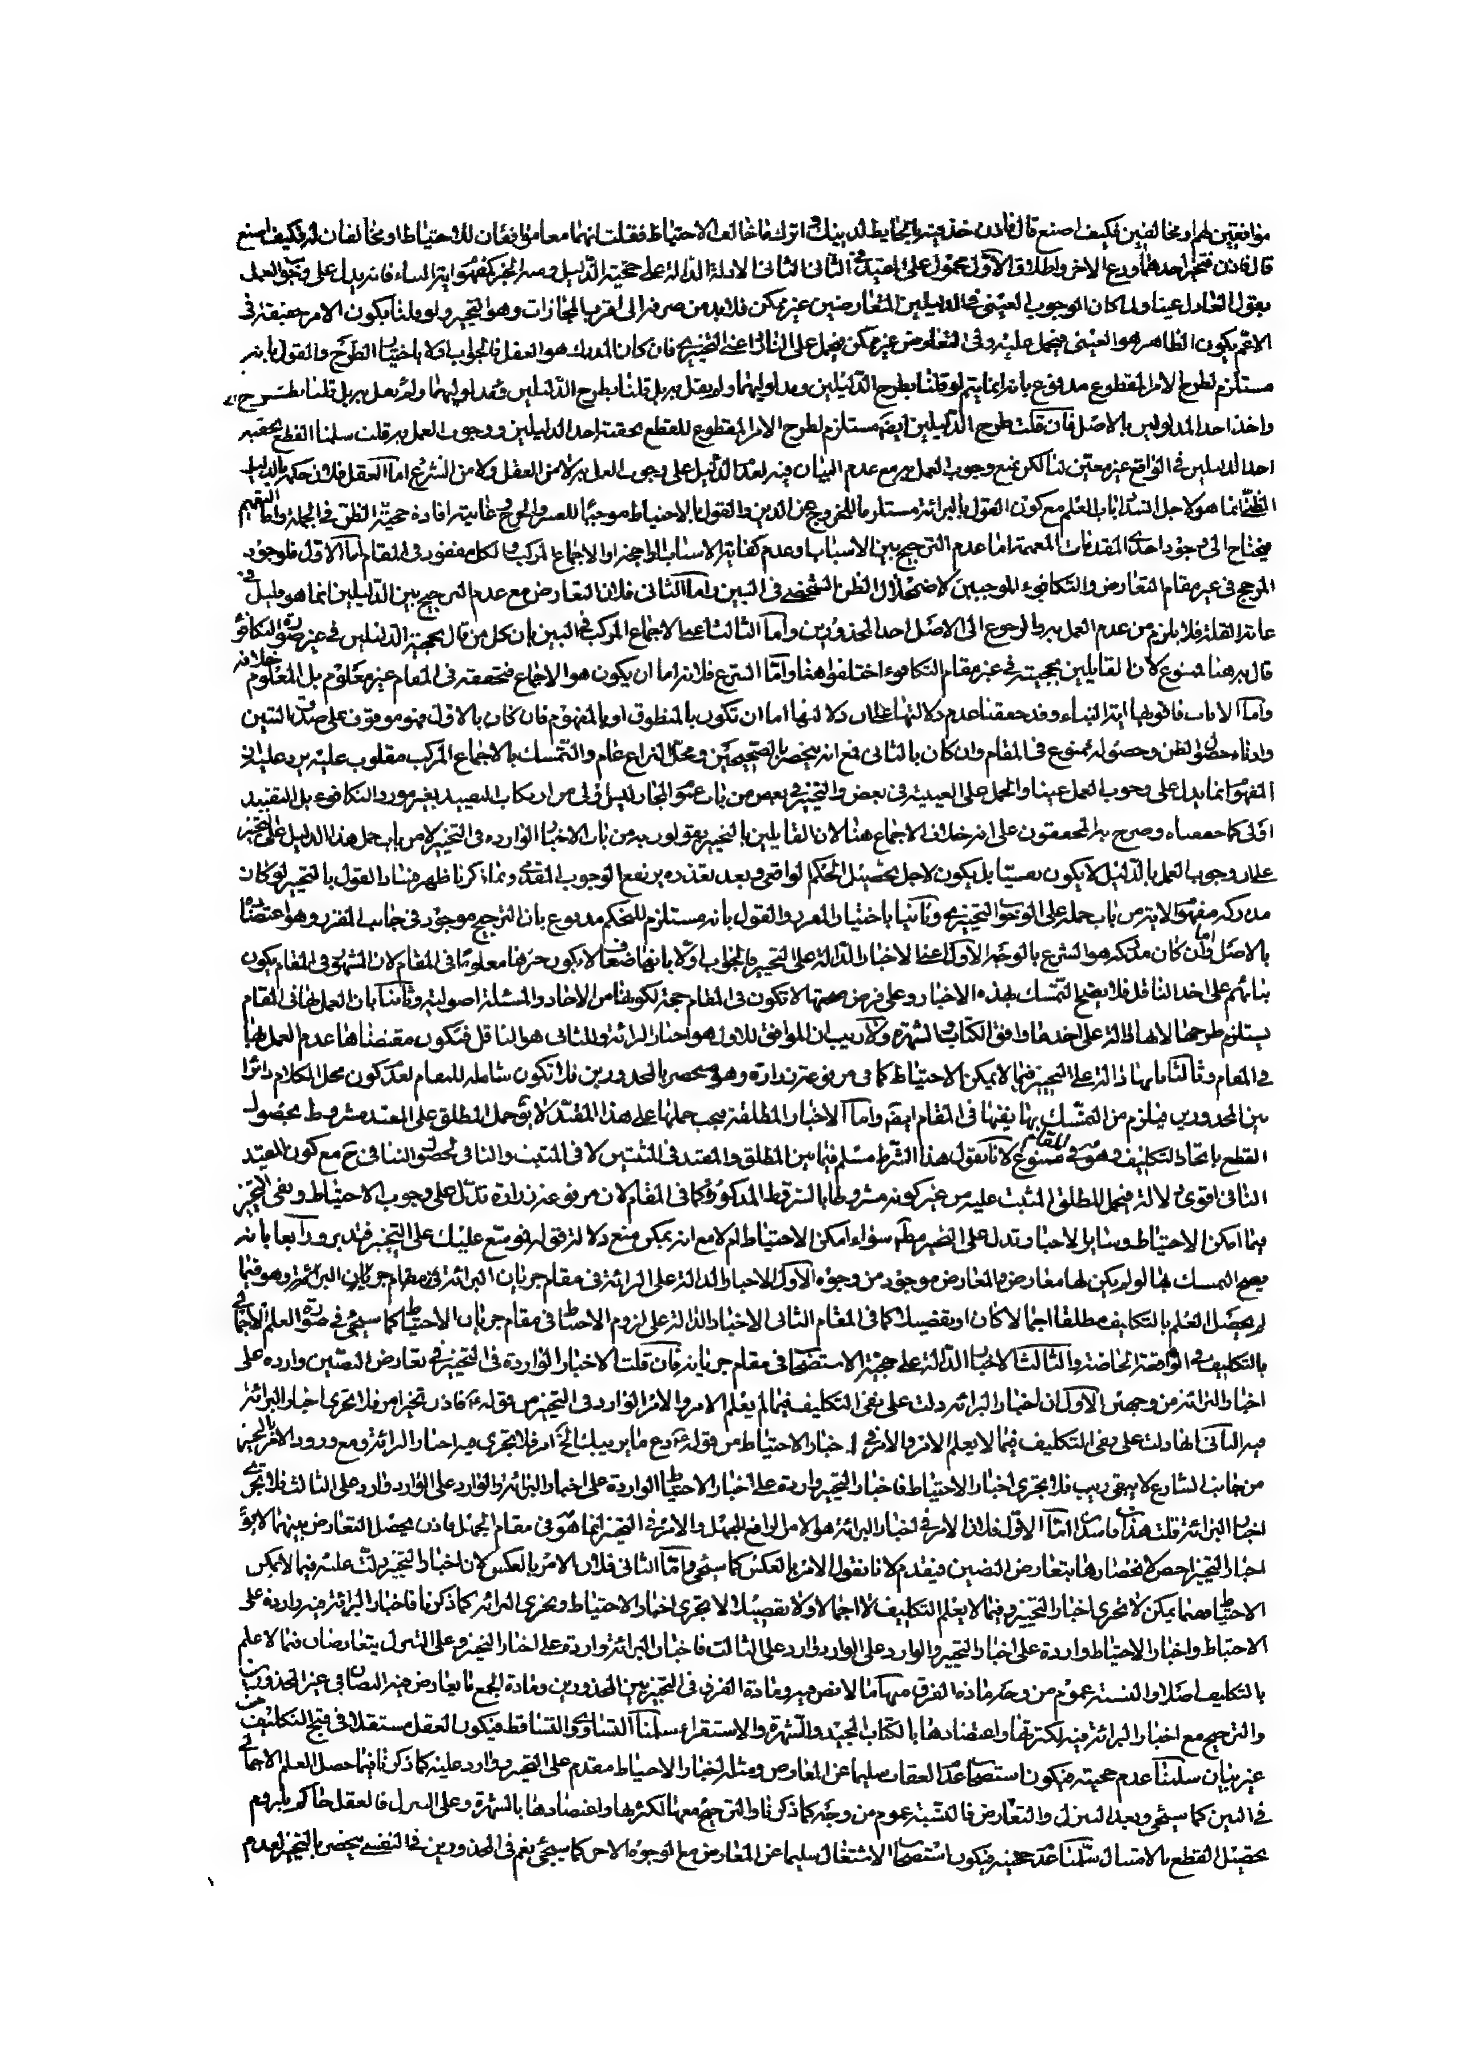 موافقين لهم او مخالفين فكيف اصنع قال فاذن خذ بما فيه الحايطة لدينك و اترك ما خالف الاحتياط فقلت انهما معا موافقان للاحتياط او مخالفان له فكيف اصنع
قال فاذن فتخير احدهما ودع الاخر واطلاق الاول محمول على المقيد فى الثانى الثانى الادلة الدالة على حجية الدليل ومنه الخبر كمفهوم اية النباء فانه يدل على وجوب العمل
بقول العادل عينا ولما كان الوجوب العينى فى الدليلين المتعارضين غير ممكن فلابد من صرفه الى اقرب المجازات وهو التخيير ولو قلنا بكون الامر حقيقة فى
الاعم يكون الظاهر هو العينى فيحمل عليه وفى التعارض غير ممكن فيحمل على الثانى اعنى التخيير فان كان المدرك هو العقل فالجواب اولا باختيار الطرح والقول بانه
مستلزم لطرح الامر المقطوع مدفوع بانه انما يتم لو قلنا بطرح الدليلين ومدلوليهما ولم يقل به بل قلنا بطرح الدليلين ومدلوليهما ولم يعمل به بل قلنا بطرح
واخذ احد المدلولين بالاصل فان قلت طرح الدليلين ايضا مستلزم لطرح الامر المقطوع للقطع بحقية احد الدليلين ووجوب العمل به قلت سلمنا القطع بحقية
احد الدليلين فى الواقع غير معين لنا لكن نمنع وجوب العمل به مع عدم البيان فيه لعدم الدليل على وجوب العمل به لا من العقل ولا من الشرع اما العقل فلان حكمه بالدليل
الظنى انما هو لاجل انسداد باب العلم مع كون القول بالبرائة مستلزما للخروج عن الدين والقول بالاحتياط موجبا للعسر والحرج غاية افادة حجية الظن فى الجملة واما التعميم
فيحتاج الى وجود احدى المقدمات المعممة اما عدم الترجيح بين الاسباب او عدم كفاية الاسباب الراجحة او الاجماع المركب والكل مفقود فى المقام اما الاول فلوجود
المرجح فى غير مقام التعارض والتكافوء الموجبين لاضمحلال الظن الشخصى فى البين واما الثانى فلان التعارض مع عدم الترجيح بين الدليلين انما هو قليل فى
غاية القلة فلا يلزم من عدم العمل به والرجوع الى الاصل احد المحذورين واما الثالث اعنى الاجماع المركب فى البين بان كل من قال بحجية الدليلين فى غير صورة التكافؤ
قال به هنا ممنوع لان القايلين بحجيته فى غير مقام التكافوء اختلفوا هنا واما الشرع فلانه اما ان يكون هو الاجماع فتحققه فى المقام غير معلوم بل المعلوم خلافه
واما الايات فاقويها اية النباء وقد حققنا عدم دلالتها على ان دلالتها اما ان تكون بالمنطوق او بالمفهوم فان كان بالاول فهو موقوف على صدق التبين
وادناه حصول الظن وحصوله ممنوع فى المقام وان كان بالثانى فمع انه ينحصر بالصحيحين ومحل النزاع عام والتمسك بالاجماع المركب مقلوب عليه يرد عليه ان
المفهوم انما يدل على وجوب العمل عينا والحمل على العينية فى بعض والتخيير فى بعض من باب عموم المجاز ليس اولى من ارتكاب التقييد بغير مورد التكافوء بل التقييد
اولى كما حققناه وصرح به المحققون على انه خلاف الاجماع هنا لان القايلين بالتخيير يقولون به من باب الاخبار الواردة فى التخيير لا من باب حمل هذا الدليل على التخيير
على ان وجوب العمل بالدليل لا يكون نفسيا بل يكون لاجل تحصيل الحكم الواقعى وبعد تعذره يرتفع الوجوب المقدمى ومما ذكرنا ظهر فساد القول بالتخيير لو كان
مدركه مفهوم الاية من باب حمله على الوجوب التخييرى وثانيا باختيار الفرد والقول بانه مستلزم للتحكم مدفوع بان الترجيح موجود فى جانب المقرر وهو اعتضاده
بالاصل واما ان كان مدركه هو الشرع بالوجه الاول اعنى الاخبار الدالة على التخيير فالجواب اولا بانها ضعاف لا يكون جبرها معلوما فى المقام لان الشهرة فى المقام يكون
بنائهم على اخذ الناقل فلا يصح التمسك بهذه الاخبار وعلى فرض صحتها لا تكون فى المقام حجة لكونها من الاحاد والمسئلة اصولية وثانيا بان العمل بها فى المقام
يستلزم طرحها لانها دالة على اخذ ما وافق الكتاب والشهرة ولا ريب ان الموافق للاول هو اخبار البرائة والثانى هو الناقل فيكون مقتضاها عدم العمل بها
فى المقام وثالثا بانها دالة على التخيير فيما لا يمكن الاحتياط كما فى مرفوعة زرارة وهو منحصر بالمحذورين فلا تكون شاملة للمقام لعدم كون محل الكلام دائرا
بين المحذورين فيلزم من التمسك بها نفيها فى المقام ايضا واما الاخبار المطلقة فيجب حملها على هذا المقيد لا يق حمل المطلق على المقيد مشروط بحصول
القطع باتحاد التكليف وهو فى المقام ممنوع لانا نقول هذا الشرط مسلم فيما بين المطلق والمقيد فى المثبتين لا فى المثبت والنافى لحصول التنافى ح مع كون المقيد
النافى اقوى دلالة فيحمل المطلق المثبت عليه من غير كونه مشروطا بالشرط المذكور كما فى المقام لان مرفوعة زرارة تدل على وجوب الاحتياط ونفى التخيير
فيما امكن الاحتياط وساير الاخبار تدل على التخيير مطلقا سواء امكن الاحتياط ام لا مع انه يمكن منع دلالة قوله فموسع عليك على التخيير فتدبر ورابعا بانه
يصح التمسك بها لو لم يكن لها معارض والمعارض موجود من وجوه الاول الاخبار الدالة على البرائة فى مقام جريان البرائة فى مقام جريان البرائة وهو فيما
لم يحصل العلم بالتكليف مطلقا اجمالا كان او تفصيلا كما فى المقام الثانى الاخبار الدالة على لزوم الاحتياط فى مقام جريان الاحتياط كما سيجئ فى صورة العلم الاجمالى
بالتكليف فى الواقعة الخاصة والثالث الاخبار الدالة على حجية الاستصحاب فى مقام جريانه فان قلت الاخبار الواردة فى التخيير فى تعارض النصين واردة على
اخبار البرائة من وجهين الاول ان اخبار البرائة دلت على نفى التكليف فيما لم يعلم الامر والامر الوارد فى التخيير من قوله ع فاذن تخير امر فلا تجرى اخبار البرائة
فيه الثانى انها دلت على نفى التكليف فيما لا يعلم الامر والامر فى اخبار الاحتياط من قوله ع دع ما يريبك الخ امر فلا تجرى فيه اخبار البرائة ومع ورود الامر بالتخيير
من جانب الشارع لا يبقى ريب فلا تجرى اخبار الاحتياط فاخبار التخيير واردة على اخبار الاحتياط الواردة على اخبار البرائة والوارد على الوارد وارد على الثالث فلا تجرى
اخبار البرائة قلت هذان فاسدان اما الاول فلان الامر فى اخبار البرائة هو الامر الواقع المجهول والامر فى التخيير انما هو فى مقام الجهل فاذن يحصل التعارض بينهما لا يق
اخبار التخيير اخص لانحصارها بتعارض النصين فيقدم لانا نقول الامر بالعكس كما سيجئ واما الثانى فلان الامر بالعكس لان اخبار التخيير دلت عليه فيما لا يمكن
الاحتياط فمهما يمكن لا تجرى اخبار التخيير وفيما لا يعلم التكليف لا اجمالا ولا تفصيلا لا تجرى اخبار الاحتياط وتجرى البرائة كما ذكرنا فاخبار البرائة فيه واردة على
الاحتياط واخبار الاحتياط واردة على اخبار التخيير والوارد على الوارد وارد على الثالث فاخبار البرائة واردة على اخبار التخيير وعلى التنزل يتعارضان فيما لا علم
بالتكليف اصلا والنسبة عموم من وجه مادة الفرق منها ما لا نص فيه ومادة الفرق فى التخيير بين المحذورين ومادة الجمع ما تعارض فيه النصان فى غير المحذورين
والترجيح مع اخبار البرائة فيه لكثرتها واعتضادها بالكتاب المجيد والشهرة والاستقراء سلمنا التساوى والتساقط فيكون العقل مستقلا فى قبح التكليف من
غير بيان سلمنا عدم حجيته فيكون استصحاب عدم العقاب سليما عن المعارض ومثله اخبار الاحتياط مقدم على التخيير ووارد عليه كما ذكرنا فيما حصل العلم الاجمالى
فى البين كما سيجئ وبعد التنزل والتعارض فالنسبة عموم من وجه كما ذكرنا والترجيح معها لكثرتها واعتضادها بالشهرة وعلى التنزل فالعقل حاكم بلزوم
تحصيل القطع بالامتثال سلمنا عدم حجيته فيكون استصحاب الاشتغال سليما عن المعارض مع الوجوه الاخر كما سيجئ نعم فى المحذورين فى النفسى ينحصر بالتخيير لعدم